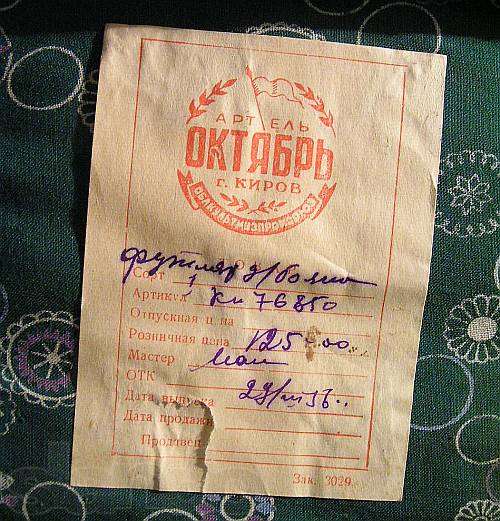 АРТЕЛЬ
ОКТЯБРЬ
г. КИРОВ
футляр д/баяна
Сорт 1
Артикул Кп 76850
Отпускная цена
Розничная цена 125-00
Мастер
ОТК
Дата выпуска 29/III 56
Дата продажи
Продавец
Зак. 3029.